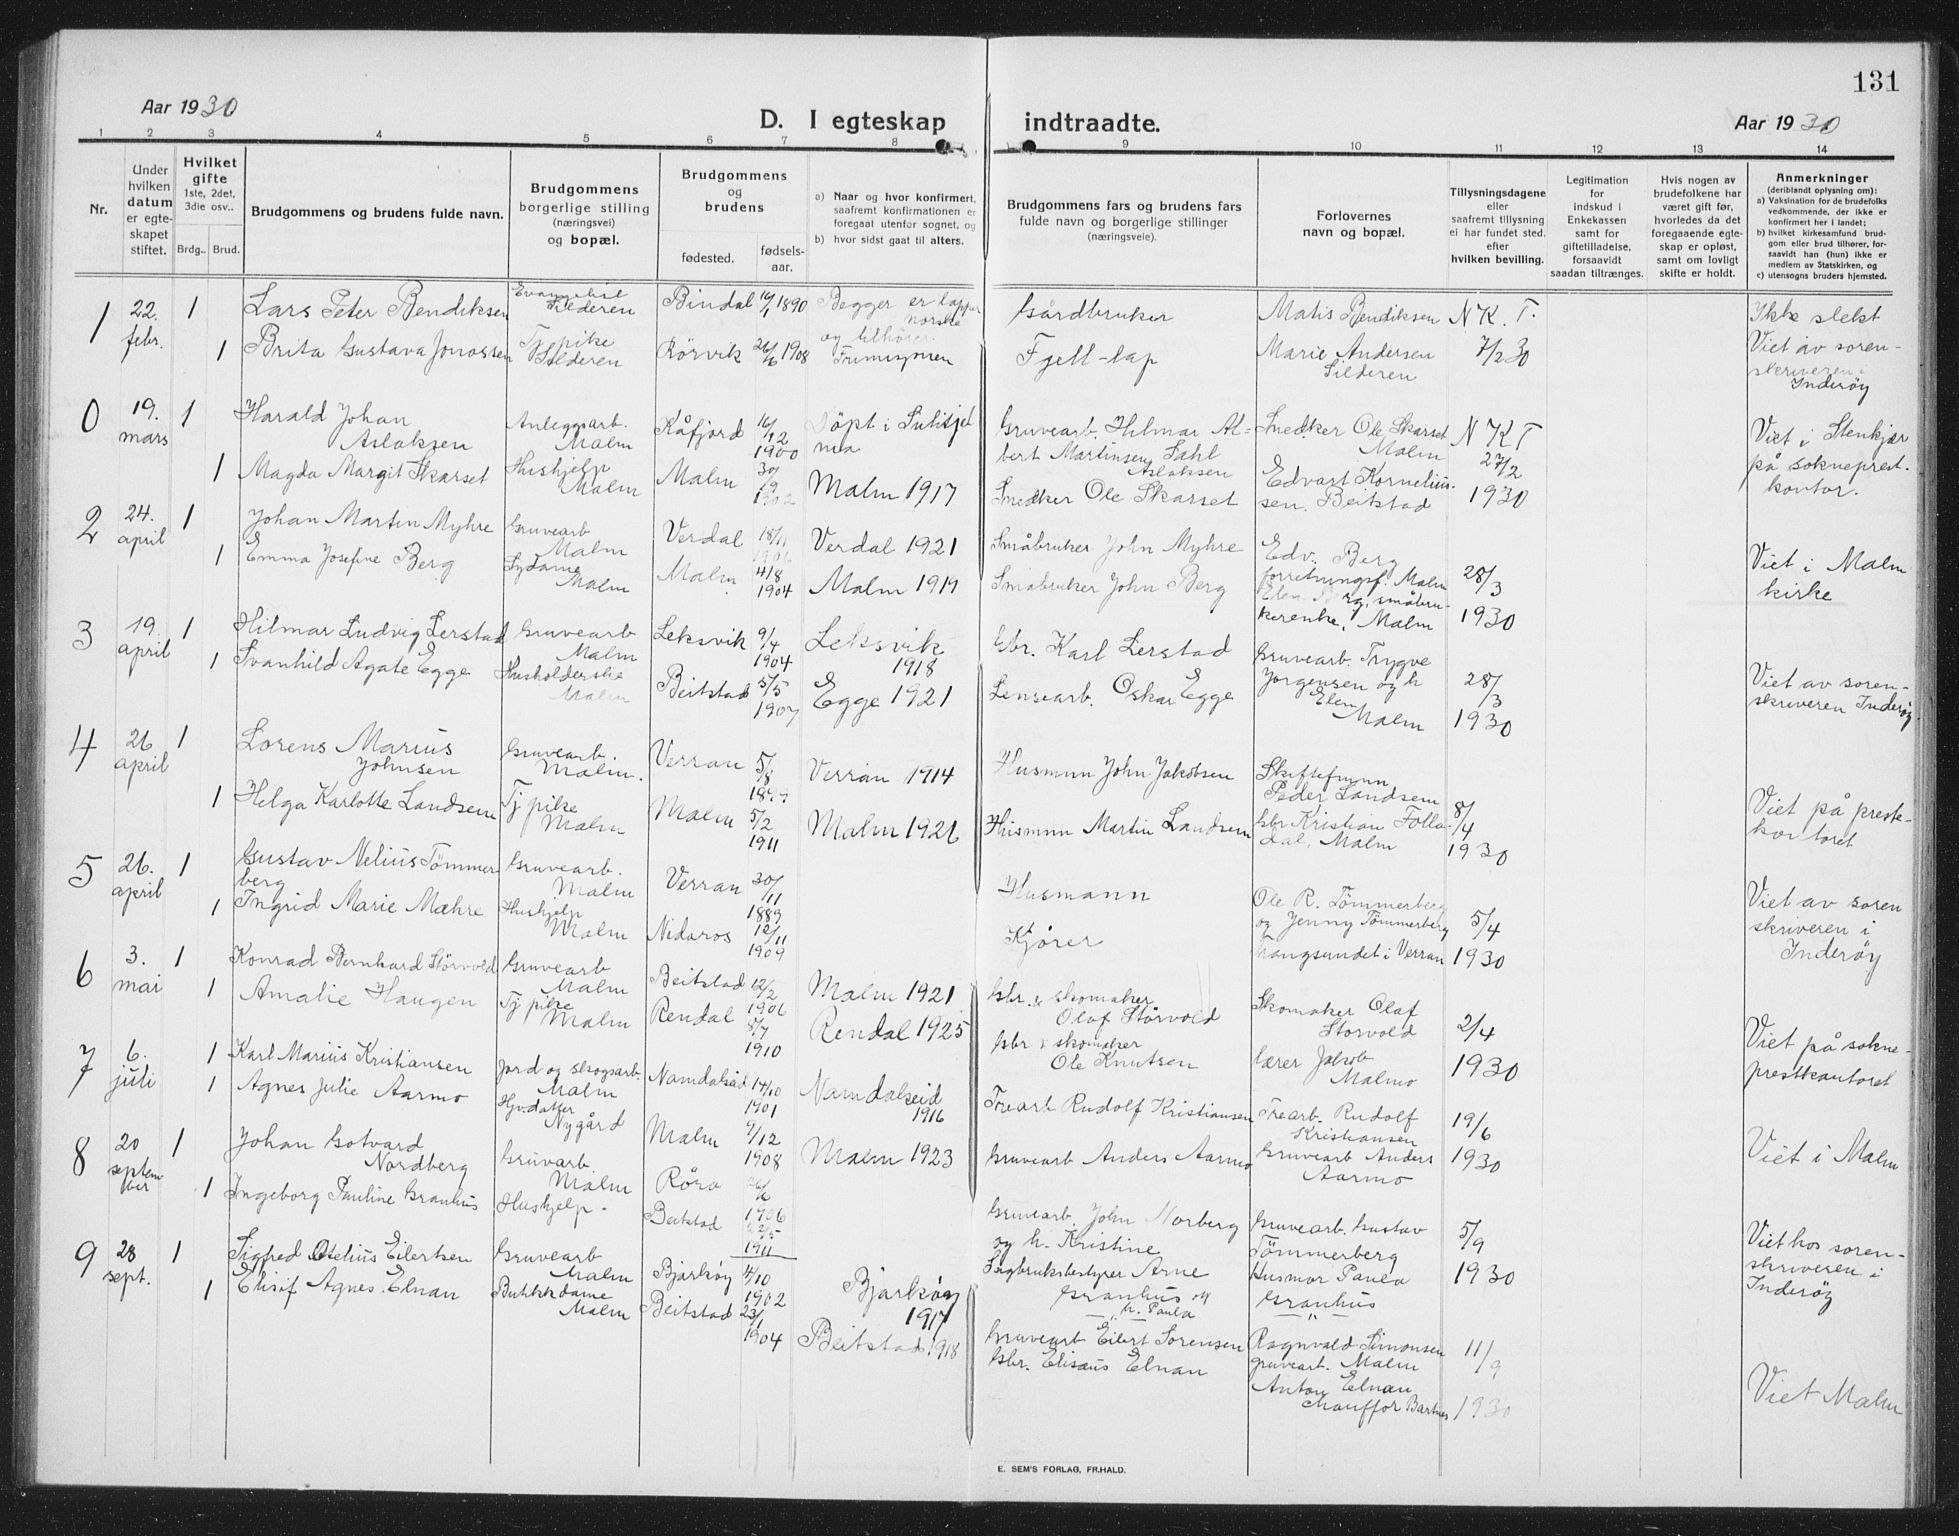 131
Aar 1930
D. I egteskap indtraadte.
Aar 1930
1 2 3 4 5 6 7 8 9 10 11 12 13 14
Nr.
Under hvilken datum er egteskapet stiftet.
Hvilket gifte 1ste, 2det, 3die osv..
Brdg.. Brud.
Brudgommens og brudens fulde navn.
Brudgommens borgerlige stilling (næringsvei) og bopæl.
Brudgommens og brudens
fødested. fødselsaar.
a) Naar og hvor konfirmert, saafremt konfirmationen er foregaat utenfor sognet, og
b) hvor sidst gaat til alters.
Brudgommens fars og brudens fars fulde navn og borgerlige stillinger (næringsveie).
Forlovernes navn og bopæl.
Tillysningsdagene eller saafremt tillysning ei har fundet sted. efter hvilken bevilling.
Legitimation for indskud i Enkekassen samt for giftetilladelse, forsaavidt saadan tiltrænges.
Hvis nogen av brudefolkene har været gift før, hvorledes da det foregaaende egteskap er opløst, samt om lovligt skifte er holdt.
Anmerkninger (deriblandt oplysning om):
a) Vaksination for de brudefolks vedkommende, der ikke er konfirmert her i landet;
b) hvilket kirkesamfund brudgom eller brud tilhører, forsaavidt han (hun) ikke er medlem av Statskirken, og
c) utensogns bruders hjemsted.
1 22. febr. 1 Lars Peter Bendiksen Evangelist Silderen Bindal 16/1 1890 Begge er lapper norske Gårdbruker Matis Bendiksen N.K.T. Ikke slekt
1 Brita Gustava Jonassen Tj pike Silderen Rörvik 26/6 1908 og tilhører Frimisjonen Fjell-lap Marie Andersen Silderen 7/2 30 Viet av soren-skriveren i Inderöy
0 19. mars 1 Harald Johan Aslaksen Anleggsarb. Malm Kåfjord 16/12 1900 Döpt i Sulitjelma Gruvearb. Hilmar Albert Martinsen Aslaksen Snedker Ole Skarset Malm N K T Viet i Stenkjær
1 Magda Margit Skarset Hushjelp Malm Malm 30/9 1902 Malm 1917 Snedker Ole Skarset Edvart Korneliussen. Beitstad 27/2 1930 på sokneprest. kontor.
2 24. april 1 Johan Martin Myhre Gruvearb Malm Verdal 18/11 Verdal 1921 Småbruker John Myhre Edv. Berg forretningsf. Malm 28/3 Viet i Malm
1 Emma Josefine Berg Sydame Malm Malm 4/8 1904 Malm 1919 Småbruker John Berg småbrukerenke, Malm 1930 kirke
3 19. april 1 Hilmar Ludvig Lerstad Gruvearb Malm Leksvik 9/4 1904 Leksvik 1918 Gbr. Karl Lerstad Gruvearb. Trygve Jörgensen og h Elen Malm 28/3 Viet av soren-
1 Svanhild Agate Egge Husholderske Malm Beitstad 5/5 1907 Egge 1921 Lensearb. Oskar Egge 1930 skriveren Inderöy
4 26 april 1 Lorens Marius Johnsen Gruvearb. Malm. Verran 5/8 1899 Verran 1914 Husmnn John Jakobsen Skiftefmnn Peder Landsem 8/4
1 Helga Karlotte Landsem Tj pike Malm Malm 5/2 1911 Malm 1926 Husmnn Martin Landsem Gbr Kristian Folladal, Malm 1930 Viet på preste-kontoret
5 26. april 1 Gustav Nelius Tömmerberg Gruvearb. Malm Verran 30/11 1889 Husmann Ole R. Tömmerberg og Jenny Tömmerberg 5/4 Viet av soren
1 Ingrid Marie Mæhre Hushjelp Malm Nidaros 12/11 1909 Kjörer Trangsundet i Verran 1930 skriveren i Inderöy
6 3. mai 1 Konrad Bernhard Störvold Gruvearb Malm Beitstad 12/2 1906 Malm 1921 Gbr. & skomaker Olaf Störvold Skomaker Olaf Storvold 2/4 Viet på sokne-
1 Amalie Haugen Tj pike Malm Rendal 8/7 1910 Rendal 1925 Gbr & skomaker Ole Knutsen Lærer Jakob Malmo 1930 prestkontoret
7 6. juli 1 Karl Marius Kristiansen Jord og skogsarb. Malm Namdalseid 14/10 1901 Namdalseid 1916 Trearb Rudolf Kristiansen Trearb. Rudolf Kristiansen 19/6
1 Agnes Julie Aarmo Hjvdatter Nygård Malm 9/12 1908 Malm 1923 Gruvearb Anders Aarmo Gruvearb Anders Aarmo 1930 Viet i Malm
8 20 september 1 Johan Gotvard Nordberg Gruvarb. Malm Röra 26/6 1906 Gruvearb. John Norberg og h. Kristine Gruvearb. Gustav Tömmerberg 5/9 Viet hos soren-
1 Ingeborg Pauline Granhus Hushjelp - Beitstad 22/5 1911 Sagbruksbestyrer Arne Granhus og h. Paula Husmor Paula Granhus 1930 skriveren i Inderöy
9 28 sept. 1 Sigfred Otelius Eilertsen Gruvearb Malm Bjarköy 4/10 1902 Bjarköy 1917 Gruvearb Eilert Sorensen Ragnvald Simonsen gruvearb. Malm 11/9
1 Elisif Agnes Elnan Butikkdame Malm Beitstad 23/1 1904 Beitstad 1918 Gbr. Elisæus Elnan Anton Elnan Chauffør Bartnes 1930 Viet Malm
E. SEM'S FORLAG, FR.HALD.